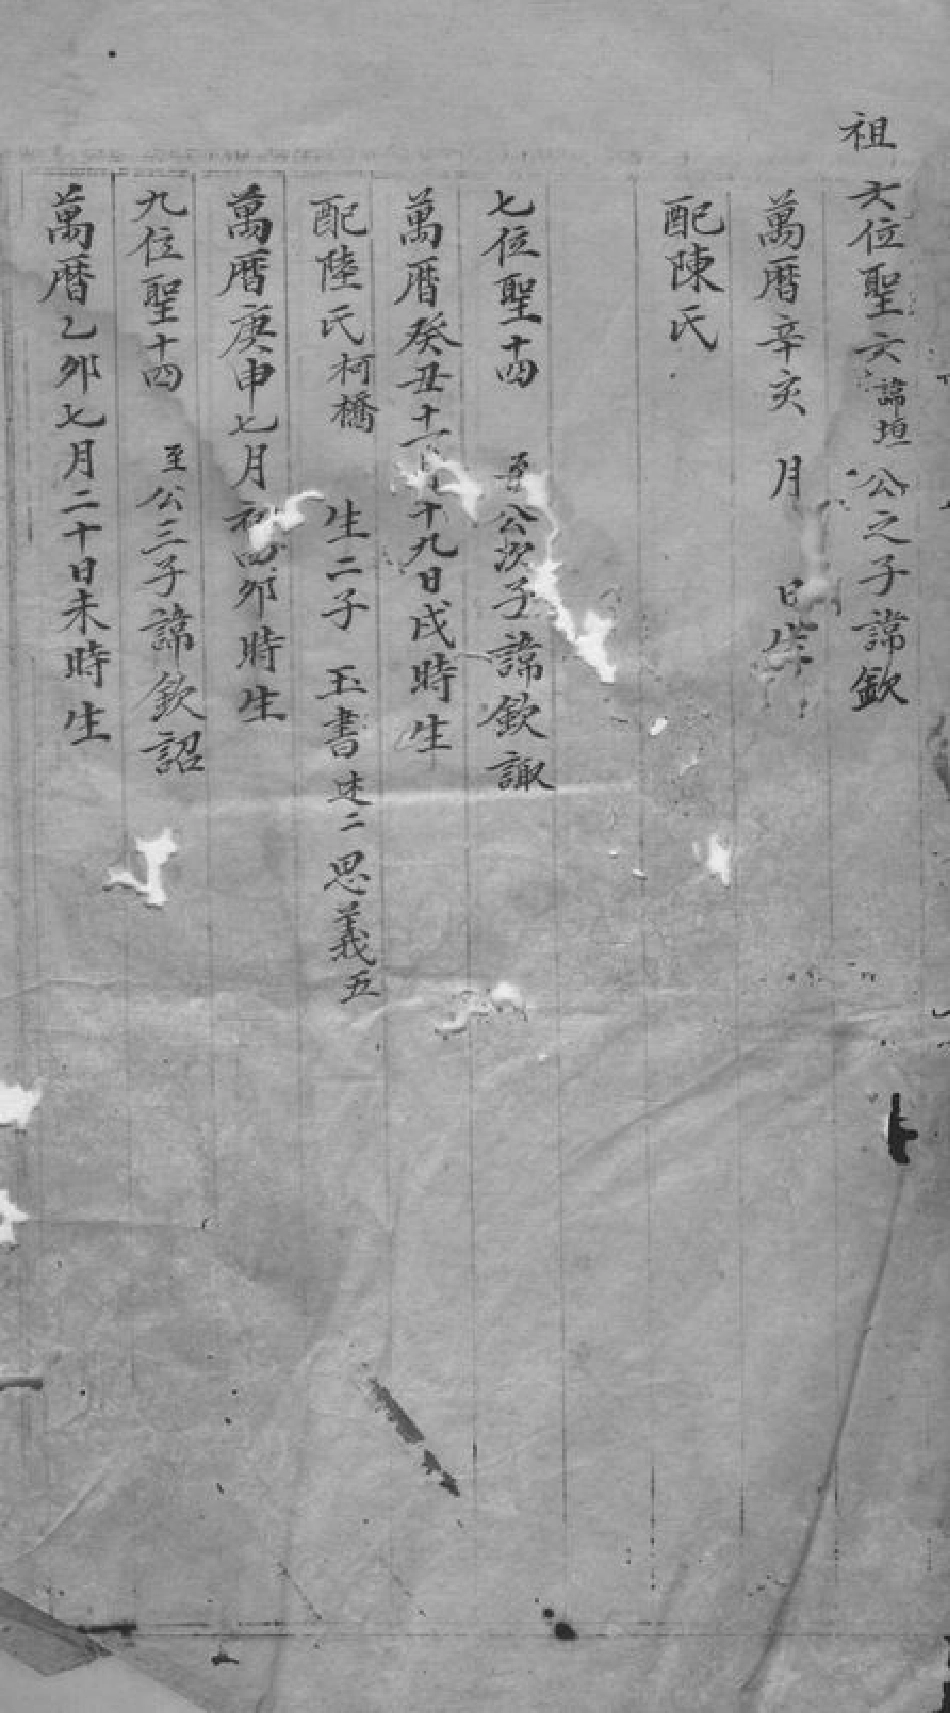 祖
六位聖六諱垣公之子諱欽
萬曆辛亥 月 日 生
配陳氏
七位聖十四 至公次子諱欽諏
萬曆癸丑十一 十九日戌時生
配陸氏柯橋 生二子 玉書 思義五
萬曆庚申七月初 卯時生
九位聖十四 至公三子諱欽詔
萬曆乙卯七月二十日未時生